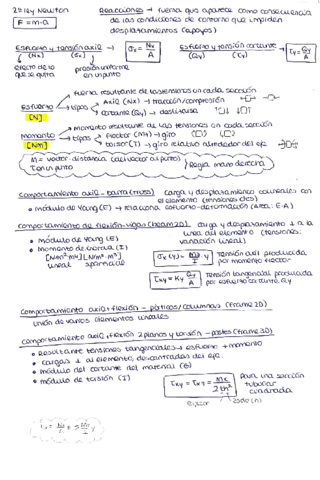 2ª ley Newton
F = m·a
Reacciones → fuerza que aparece como consecuencia
de las condiciones de contorno que impiden
desplazamientos (apoyos)
Esfuerzo y tensión axil → σx = Nx/A
(Nx) (σx)
efecto de lo que se quita
presión uniforme en un punto
Esfuerzo y tensión cortante → τy = Qy/A
(Qy) (τy)
fuerza resultante de las tensiones en cada sección
Esfuerzo → tipos Axil (Nx) → tracción/compresión
[N] cortante (Qy) → deslizante
momento resultante de las tensiones en cada sección
Momento → tipos Flector (Mf) → giro
[Nm] torsor (T) → giro relativo alrededor del eje
M = vector distancia (del vector al punto)
T en un punto
Regla mano derecha
Comportamiento axil - barra (truss) carga y desplazamiento axiales en
el elemento (tensiones ctes)
• módulo de Young (E) → relaciona esfuerzo-deformación (área: E·A)
Comportamiento de flexión-vigas (beam 2D) carga y desplazamiento ⊥ a la
línea del elemento (tensiones:
variación lineal)
• módulo de Young (E)
• Momento de inercia (I)
lineal
Tensión axil producida
por momento flector
Tensión tangencial producida
por esfuerzo cortante Qy
τxy = Ky Qy/A
Comportamiento axil + flexión - pórticos/columnas (frame 2D)
Unión de varios elementos lineales
Comportamiento axil + flexión 2 planos y torsión - postes (frame 3D)
• Resultante tensiones tangenciales → esfuerzo + momento
• cargas ⊥ al elemento, descentradas del eje
• módulo del cortante del material (G)
• módulo de torsión (I)
para una sección
tubular
cuadrada
espesor
lado (h)